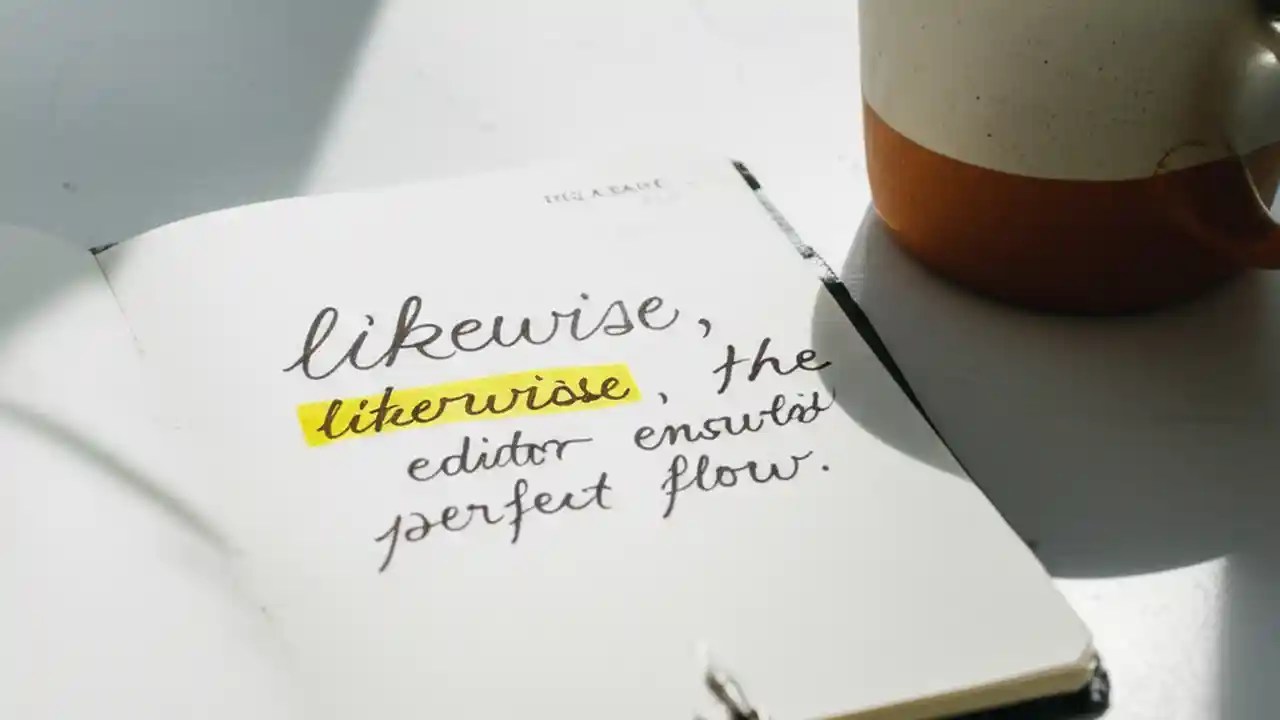 likewise,
likerwisse, the
editor
perfect flow.